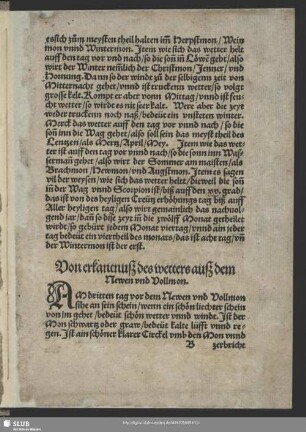 es sich zům meysten theil halten im̃ Herpstmon/ Wein
mon vnnd Wintermon. Item wie sich das wetter helt
auff den tag vor vnd nach/ so die son̄ in Löwē geht/ also
wirt der Winter nem̃lich der Christmon/ Jenner/ vnd
Hornung. Dann so der windt zů der selbigenn zeit von
Mitternacht gehet/ vnnd ist truckenn wetter/ so volgt
grosse kelt. Kompt er aber vonn Mittag/ vnnd ist feu-
cht wetter/ so wirdt es nit seer kalt. Were aber die zeyt
weder truckenn noch naß/ bedeüt ein vnsteten winter.
Merck das wetter auff den tag vor vnnd nach/ so die
son̄ inn die Wag gehet/ also soll sein das meyst theil des
Lentzen/ als Mertz/ April/ Mey. Item wie das wet-
ter ist auff den tag vor vnnd nach/ so die sonn inn Was
serman gehet/ also wirt der Sommer am maisten/ als
Brachmon/ Hewmon/ vnd Augstmon. Item es sagen
vil der weysen/ wie sich das wetter helte/ dieweil die son̄
in̄ der Wag vnnd Scorpion ist/ biß auff den xv. grad/
das ist von des heyligen Creütz erhöhungs tag biß auff
Aller heyligen tag/ also wirt gemainklich das nachuol-
gend jar/ dan̄ so dise zeyt in̄ die zwölff Monat getheilet
wirdt/ so gebürt jedem Monat viertag/ vnnd ain jeder
tag bedeüt ein viertheil des monats/ das ist acht tag/ vn̄
der Wintermon ist der erst.
Von erkantnuß des wetters auß dem
Newen vnd Vollmon.
AM dritten tag vor dem Newen vnd Vollmon
sihe an sein schein/ wenn ein schön liechter schein
von jm gehet/ bedeüt schön wetter vnnd windt. Ist der
Mon schwartz oder graw/ bedeüt kalte lüfft vnnd re-
gen. Ist ain schöner klarer Circkel vmb den Mon vnnd
B zerbricht
SLUB
Wir führen Wissen.